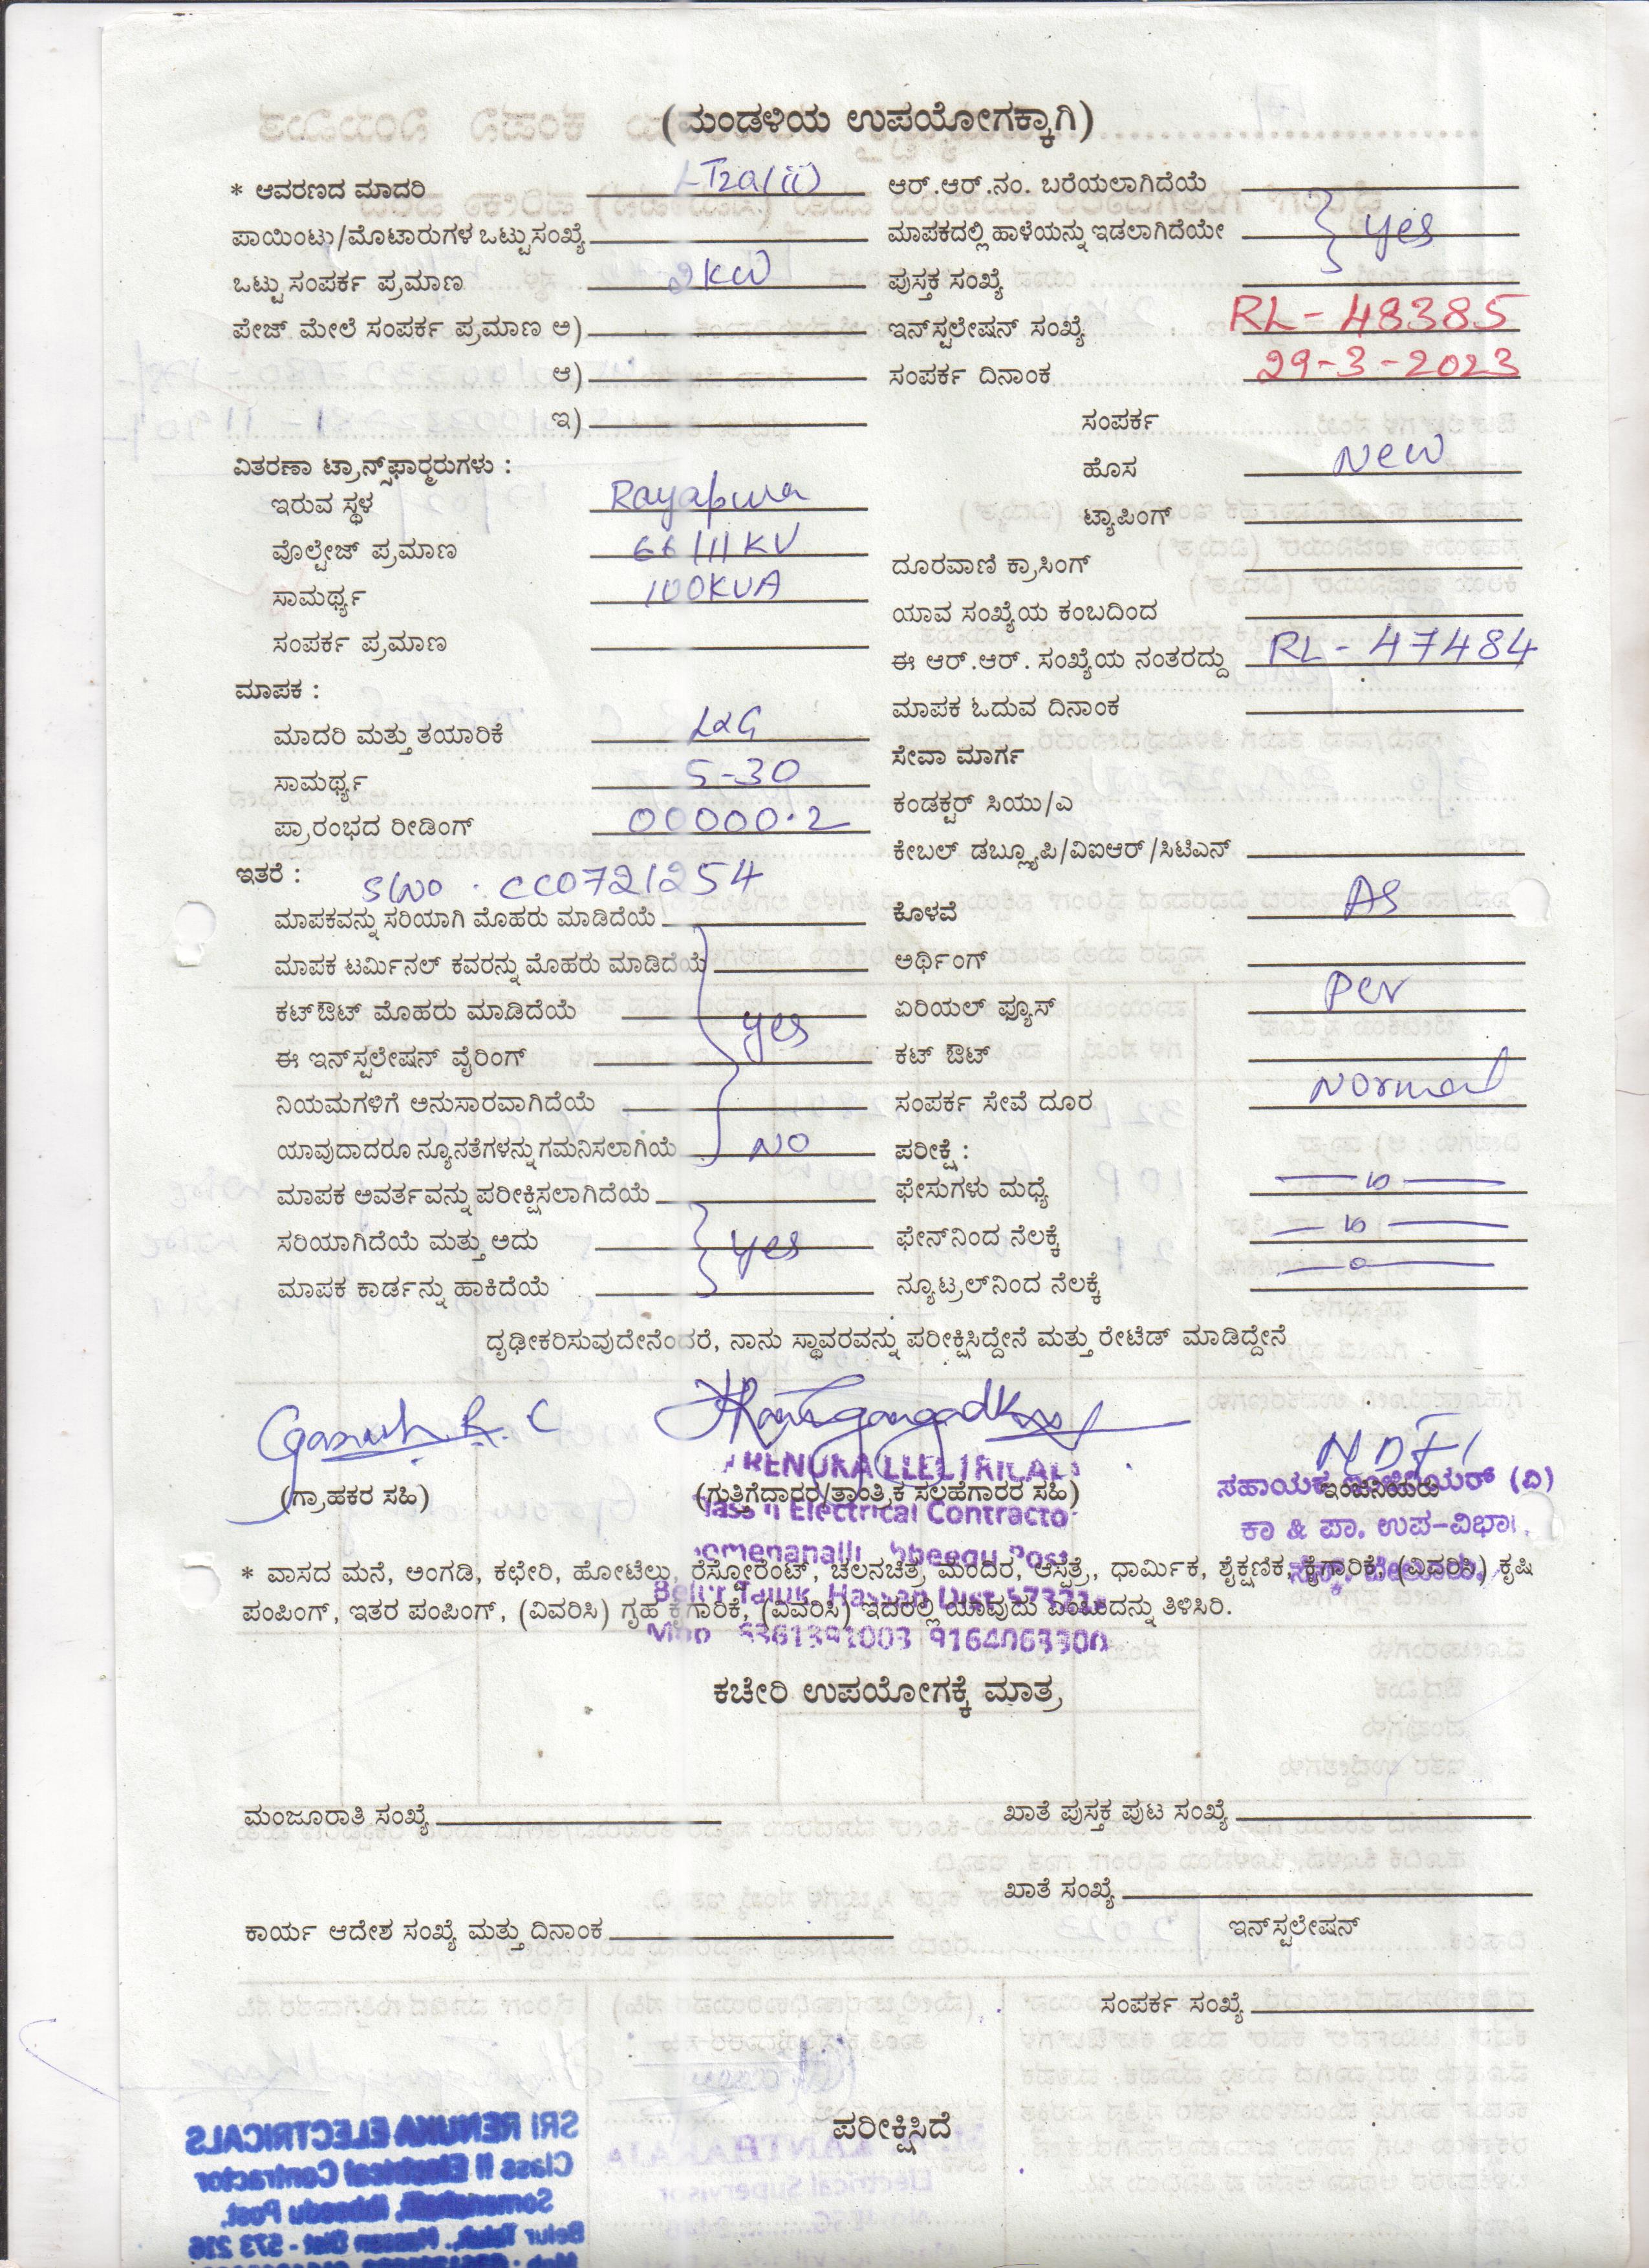 (ಮಂಡಳಿಯ ಉಪಯೋಗಕ್ಕಾಗಿ)
* ಆವರಣದ ಮಾದರಿ LT2a(ii)
ಪಾಯಿಂಟು/ಮೊಟಾರುಗಳ ಒಟ್ಟುಸಂಖ್ಯೆ
ಒಟ್ಟು ಸಂಪರ್ಕ ಪ್ರಮಾಣ 2KW
ಪೇಜ್ ಮೇಲೆ ಸಂಪರ್ಕ ಪ್ರಮಾಣ ಅ)
ಆ)
ಇ)
ವಿತರಣಾ ಟ್ರಾನ್ಸ್‌ಫಾರ್‍ಮರುಗಳು :
ಇರುವ ಸ್ಥಳ Rayapura
ವೊಲ್ಟೇಜ್ ಪ್ರಮಾಣ 66/11KV
ಸಾಮರ್ಥ್ಯ 100KVA
ಸಂಪರ್ಕ ಪ್ರಮಾಣ
ಮಾಪಕ :
ಮಾದರಿ ಮತ್ತು ತಯಾರಿಕೆ L&G
ಸಾಮರ್ಥ್ಯ 5-30
ಪ್ರಾರಂಭದ ರೀಡಿಂಗ್ 00000.2
ಇತರೆ : SNO : CC0721254
ಮಾಪಕವನ್ನು ಸರಿಯಾಗಿ ಮೊಹರು ಮಾಡಿದೆಯೆ
ಮಾಪಕ ಟರ್ಮಿನಲ್ ಕವರನ್ನು ಮೊಹರು ಮಾಡಿದೆಯೆ
ಕಟ್‌ಔಟ್ ಮೊಹರು ಮಾಡಿದೆಯೆ yes
ಈ ಇನ್‌ಸ್ಟಲೇಷನ್ ವೈರಿಂಗ್
ನಿಯಮಗಳಿಗೆ ಅನುಸಾರವಾಗಿದೆಯೆ
ಯಾವುದಾದರೂ ನ್ಯೂನತೆಗಳನ್ನು ಗಮನಿಸಲಾಗಿಯೆ NO
ಮಾಪಕ ಅವರ್ತವನ್ನು ಪರೀಕ್ಷಿಸಲಾಗಿದೆಯೆ
ಸರಿಯಾಗಿದೆಯೆ ಮತ್ತು ಅದು yes
ಮಾಪಕ ಕಾರ್ಡನ್ನು ಹಾಕಿದೆಯೆ
ಆರ್.ಆರ್.ನಂ. ಬರೆಯಲಾಗಿದೆಯೆ
ಮಾಪಕದಲ್ಲಿ ಹಾಳೆಯನ್ನು ಇಡಲಾಗಿದೆಯೇ yes
ಪುಸ್ತಕ ಸಂಖ್ಯೆ
ಇನ್‌ಸ್ಟಲೇಷನ್ ಸಂಖ್ಯೆ RL-48385
ಸಂಪರ್ಕ ದಿನಾಂಕ 29-3-2023
ಸಂಪರ್ಕ
ಹೊಸ New
ಟ್ಯಾಪಿಂಗ್
ದೂರವಾಣಿ ಕ್ರಾಸಿಂಗ್
ಯಾವ ಸಂಖ್ಯೆಯ ಕಂಬದಿಂದ
ಈ ಆರ್.ಆರ್. ಸಂಖ್ಯೆಯ ನಂತರದ್ದು RL-47484
ಮಾಪಕ ಓದುವ ದಿನಾಂಕ
ಸೇವಾ ಮಾರ್ಗ
ಕಂಡಕ್ಟರ್ ಸಿಯು/ಎ
ಕೇಬಲ್ ಡಬ್ಲ್ಯೂಪಿ/ವಿಐಆರ್/ಸಿಟಿಎನ್
ಕೊಳವೆ As
ಅರ್ಥಿಂಗ್
ಏರಿಯಲ್ ಫ್ಯೂಸ್ Per
ಕಟ್ ಔಟ್
ಸಂಪರ್ಕ ಸೇವೆ ದೂರ Normal
ಪರೀಕ್ಷೆ :
ಫೇಸುಗಳು ಮಧ್ಯೆ
ಫೇನ್‌ನಿಂದ ನೆಲಕ್ಕೆ
ನ್ಯೂಟ್ರಲ್‌ನಿಂದ ನೆಲಕ್ಕೆ
ದೃಢೀಕರಿಸುವುದೇನೆಂದರೆ, ನಾನು ಸ್ಥಾವರವನ್ನು ಪರೀಕ್ಷಿಸಿದ್ದೇನೆ ಮತ್ತು ರೇಟೆಡ್ ಮಾಡಿದ್ದೇನೆ
Ganesh R. C
RENUKA ELECTRICALS
(ಗ್ರಾಹಕರ ಸಹಿ) (ಗುತ್ತಿಗೆದಾರರ/ತಾಂತ್ರಿಕ ಸಲಹೆಗಾರರ ಸಹಿ) ಇಂಜಿನಿಯರು
ಸಹಾಯಕ ಇಂಜಿನಿಯರ್ (ವಿ)
Class II Electrical Contractor
ಕಾ & ಪಾ. ಉಪ-ವಿಭಾಗ
* ವಾಸದ ಮನೆ, ಅಂಗಡಿ, ಕಛೇರಿ, ಹೋಟೆಲು, ರೆಸ್ಟೋರೆಂಟ್, ಚಲನಚಿತ್ರ ಮಂದಿರ, ಆಸ್ಪತ್ರೆ, ಧಾರ್ಮಿಕ, ಶೈಕ್ಷಣಿಕ, ಕೈಗಾರಿಕೆ, (ವಿವರಿಸಿ) ಕೃಷಿ
Belur Taluk, Hassan Dist
ಪಂಪಿಂಗ್, ಇತರ ಪಂಪಿಂಗ್, (ವಿವರಿಸಿ) ಗೃಹ ಕೈಗಾರಿಕೆ, (ವಿವರಿಸಿ) ಇದರಲ್ಲಿ ಯಾವುದು ಎಂಬುದನ್ನು ತಿಳಿಸಿರಿ.
9164063300
ಕಚೇರಿ ಉಪಯೋಗಕ್ಕೆ ಮಾತ್ರ
ಮಂಜೂರಾತಿ ಸಂಖ್ಯೆ ಖಾತೆ ಪುಸ್ತಕ ಪುಟ ಸಂಖ್ಯೆ
ಖಾತೆ ಸಂಖ್ಯೆ
ಕಾರ್ಯ ಆದೇಶ ಸಂಖ್ಯೆ ಮತ್ತು ದಿನಾಂಕ ಇನ್‌ಸ್ಟಲೇಷನ್
ಸಂಪರ್ಕ ಸಂಖ್ಯೆ
ಪರೀಕ್ಷಿಸಿದೆ
SRI RENUKA ELECTRICALS
Class II Electrical Contractor
Belur Taluk, Hassan Dist - 573 216